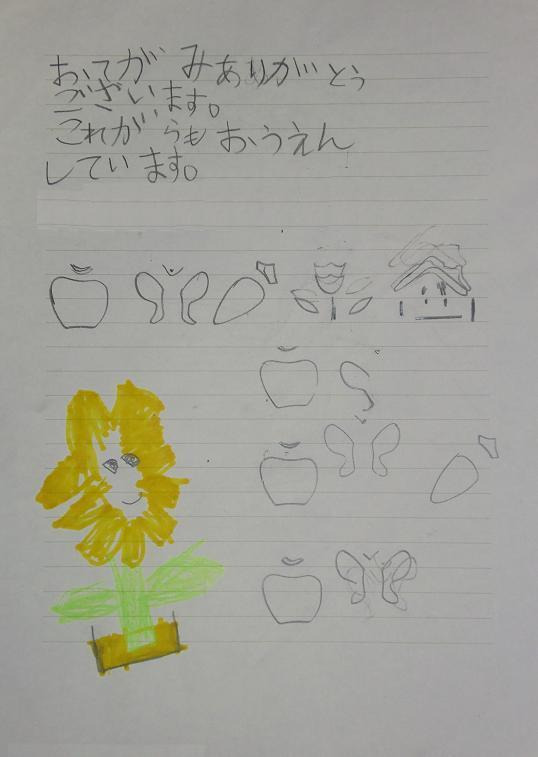 おてがみありがとう
ございます。
これがらもおうえん
しています。